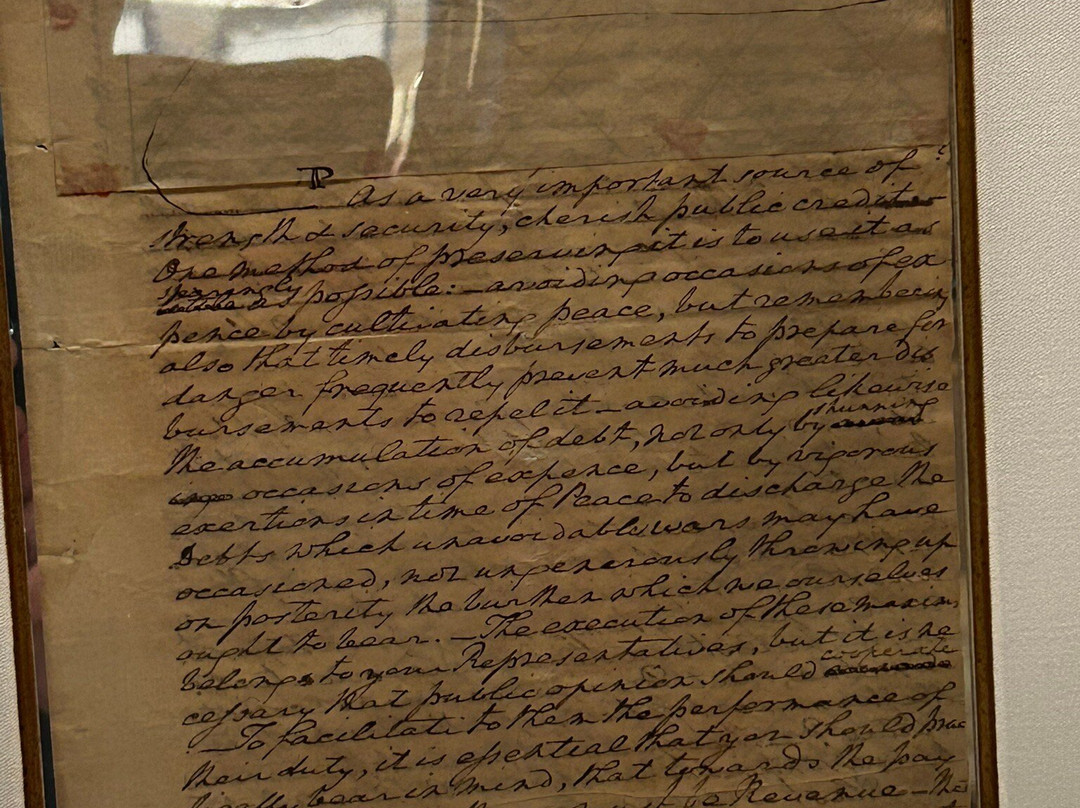 P As a very important source of
strength & security, cherish public credit
One method of preserving it is to use it as
sparingly
as possible: – avoiding occasions of ex
pence by cultivating peace, but remembering
also that timely disbursements to prepare for
danger frequently prevent much greater dis
bursements to repel it – avoiding likewise
the accumulation of debt, not only by shunning
occasions of expence, but by vigorous
exertions in time of Peace to discharge the
Debts which unavoidable wars may have
occasioned, not ungenerously throwing up
on posterity the burthen which we ourselves
ought to bear. – The execution of these maxims
belongs to your Representatives, but it is ne
cessary that public opinion should cooperate
– To facilitate to them the performance of
their duty, it is essential that you should prac
tically bear in mind, that towards the pay
be Revenue – the